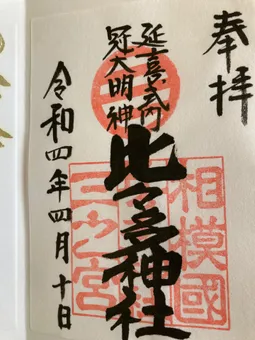 奉拝
延喜式内
冠大明神
比々多神社
令和四年四月十日
相模國
三之宮